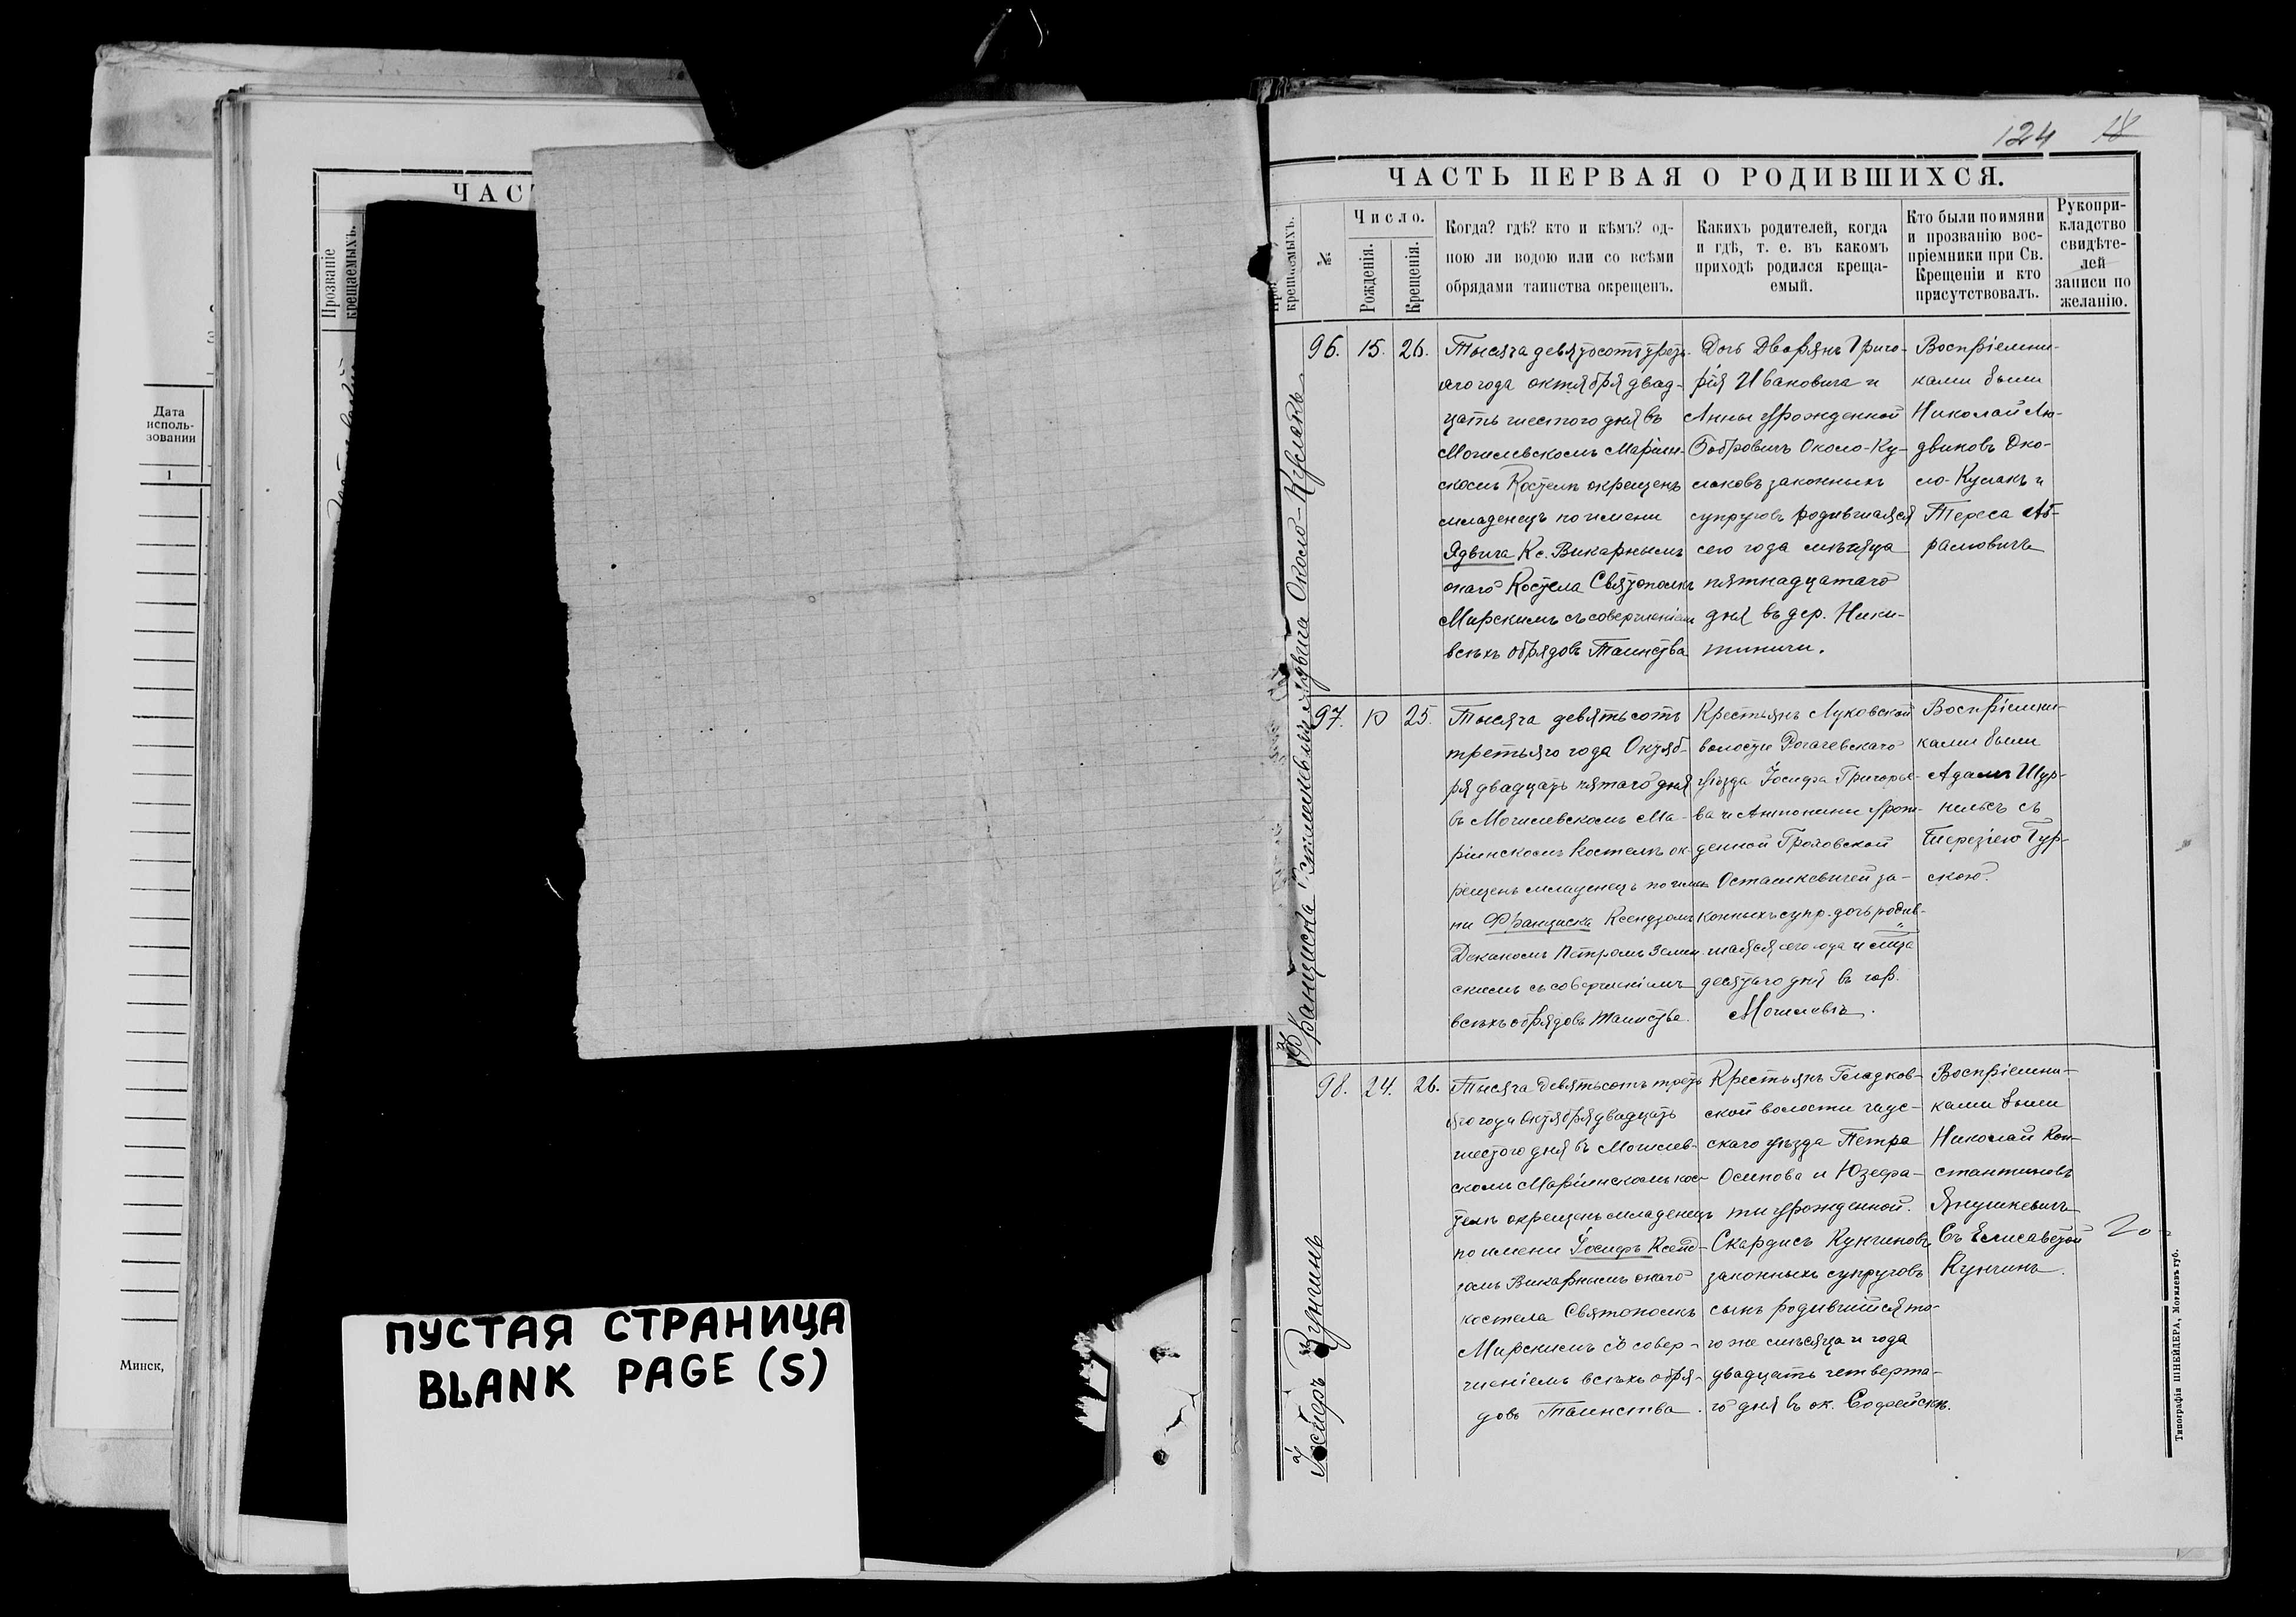 Дата
исполь-
зовании
1
Минск,
ЧАСТ
Прозваніе
крещаемыхъ.
ПУСТАЯ СТРАНИЦА
BLANK PAGE (S)
124 18
ЧАСТЬ ПЕРВАЯ О РОДИВШИХСЯ.
крещаемыхъ.
№.
Число.
Рожденія.
Крещенія.
Когда? гдѣ? кто и кѣмъ? од-
ною ли водою или со всѣми
обрядами таинства окрещенъ.
Какихъ родителей, когда
и гдѣ, т. е. въ какомъ
приходѣ родился креща-
емый.
Кто были по имяни
и прозванію вос-
пріемники при Св.
Крещеніи и кто
присутствовалъ.
Рукопри-
кладство
свидѣте-
лей
записи по
желанію.
Ядвига Около-Кулакъ
96. 15. 26.
Тысяча девятьсотъ треть-
яго года октября двад-
цать шестого дня въ
Могилевскомъ Маріин-
скомъ Костелѣ окрещенъ
младенецъ по имени
Ядвига Кс. Викарнымъ
онаго Костела Святополкъ
Мирскимъ съ совершеніемъ
всѣхъ обрядовъ Таинства
Дочь Дворянъ Григо-
рія Ивановича и
Анны урожденной
Бобровичъ Около-Ку-
лаковъ законныхъ
супруговъ родившаяся
сего года мѣсяца
пятнадцатаго
дня въ дер. Ники-
тиничи.
Воспріемни-
ками были
Николай Лю-
двиковъ Око-
ло-Кулакъ и
Тереса Аб-
рамовичъ
Франциска
97. 10 25.
Тысяча девятьсотъ
третьяго года Октяб-
ря двадцать пятаго дня
въ Могилевскомъ Ма-
ріинскомъ Костелѣ ок-
рещенъ младенецъ по име-
ни Франциска Ксендзомъ
Деканомъ Петромъ
скимъ съ совершеніемъ
всѣхъ обрядовъ Таинства.
Крестьянъ Луковской
волости Рогачевскаго
уѣзда Іосифа Григорье-
ва и Антонины урож-
денной Громовской
Осташкевичей за-
конныхъ супр. дочь родив-
шаяся сего года и м-ца
десятаго дня въ гор.
Могилевѣ.
Воспріемни-
ками были
Адамъ Шур-
съ
Терезіею Гур-
скою.
Іосифъ Кунчинъ
98. 24. 26.
Тысяча девятьсотъ треть-
яго года Октября двадцать
шестого дня въ Могилев-
скомъ Маріинскомъ кос-
телѣ окрещенъ младенецъ
по имени Іосифъ Ксенд-
зомъ Викарнымъ онаго
костела Святополкъ
Мирскимъ съ совер-
шеніемъ всѣхъ обря-
довъ Таинства.
Крестьянъ Гладков-
ской волости Чаус-
скаго уѣзда Петра
Осипова и Юзефа-
ты урожденной.
Скардисъ Кунчиновъ
законныхъ супруговъ
сынъ родившійся то-
го же мѣсяца и года
двадцать четверта-
го дня въ ок. Софейскѣ.
Воспріемни-
ками были
Николай Кон-
стантиновъ
Янушкевичъ
Съ Елисаветой
Кунчинъ.
Типографія ШНЕЙДЕРА, Могилевъ губ.